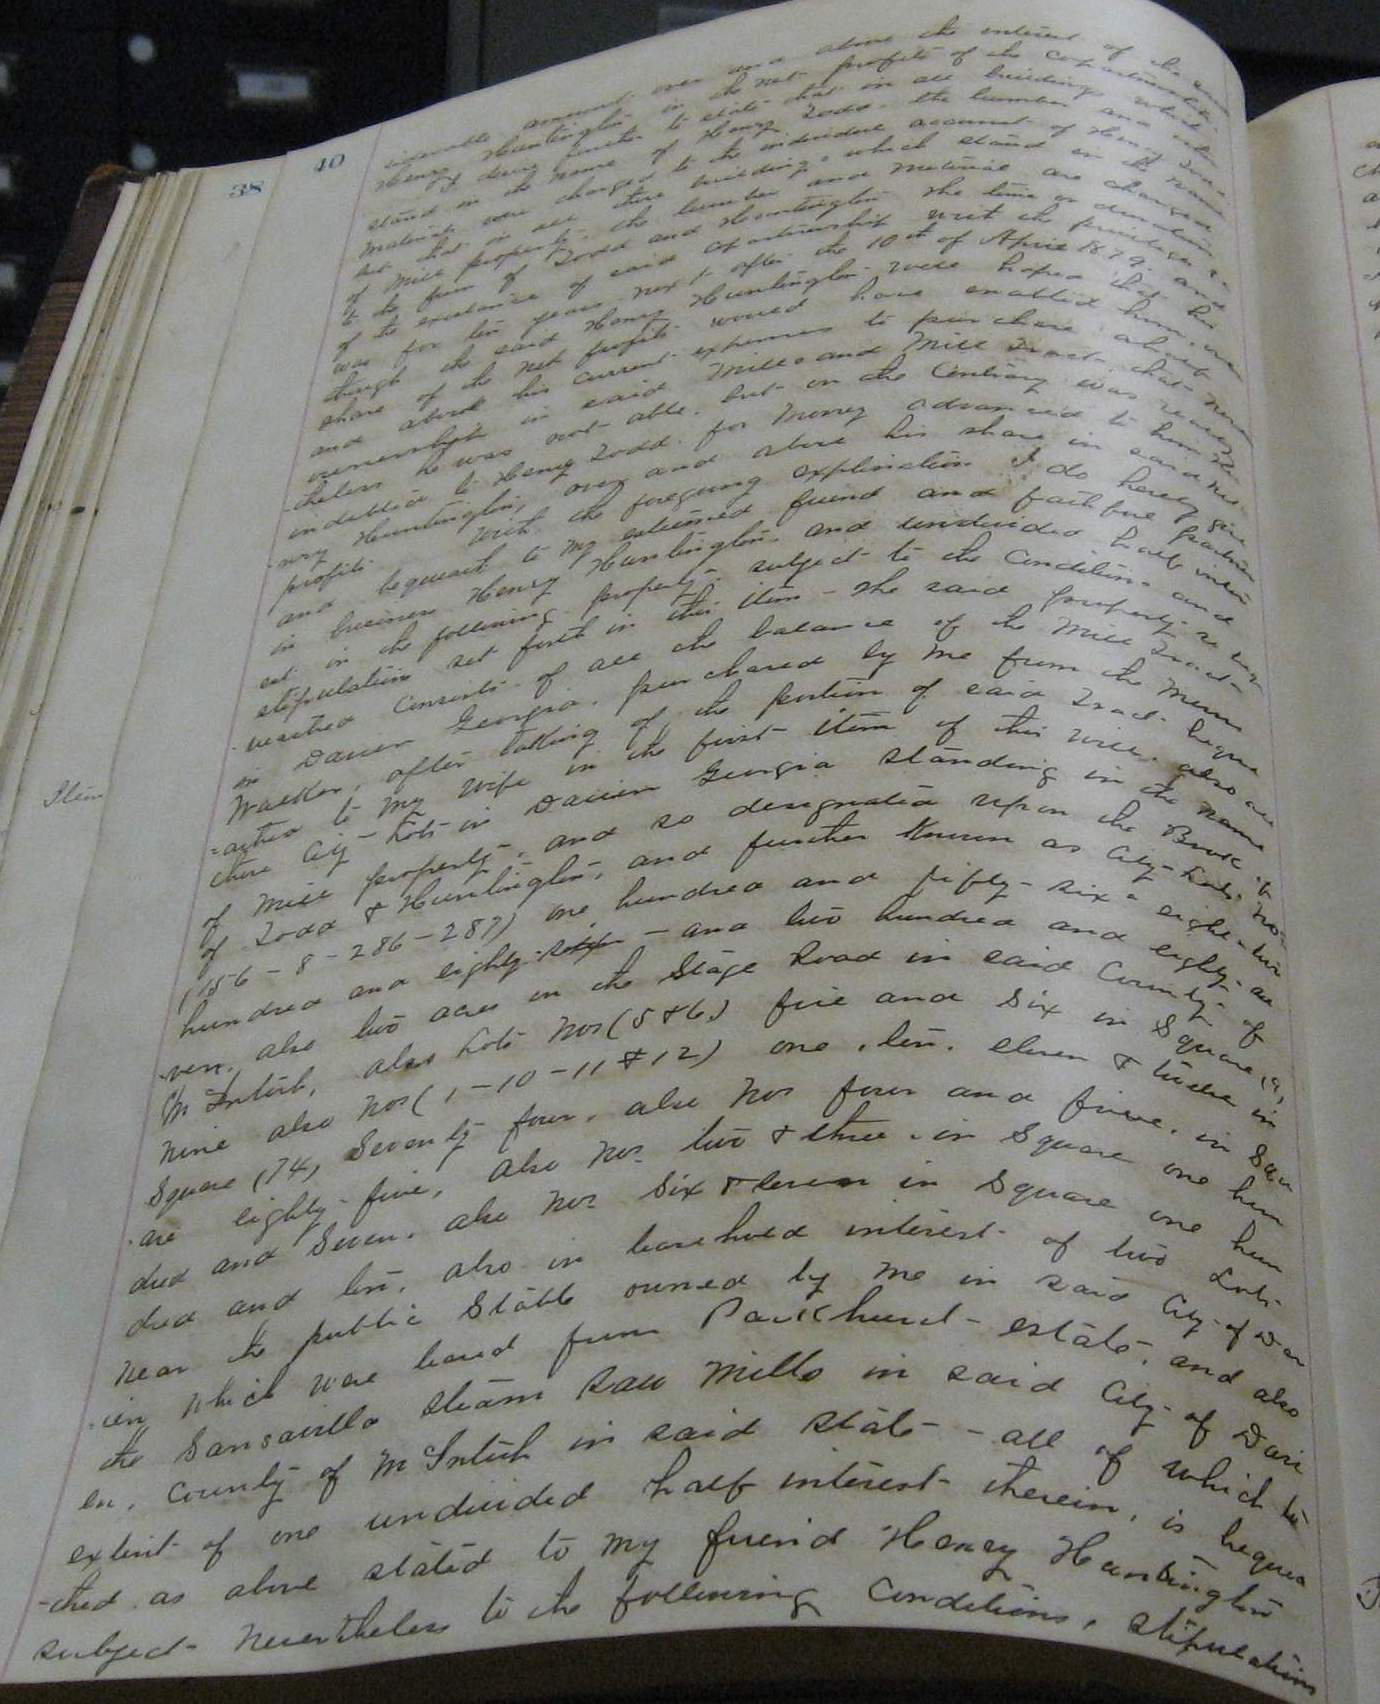 38
40
amount over and above the interest of the said
Henry Huntington in the net profits of the copartnership
desire further to state that in all buildings which
stand in the name of Henry Todd. the lumber and other
material were charged to the individual account of Henry Todd
but that in all other buildings which stand in the name
of Mill property, the lumber and material are charged
to the firm of Todd and Huntington. The time or duration
of the existence of said copartnership with the privileges
was for ten years next after the 10th of April 1879. and
though the said Henry Huntington were hoped that his
share of the net profits would have enabled him, over
and above his current expenses to purchase about
ownership in said Mills and Mill Tract, that never
-theless he was not able. but on the Contrary was
indebted to Henry Todd. for money advanced to him He-
-nry Huntington, over and above his share in said net
profits. With the foregoing explination I do hereby give
and bequeath to my esteemed friend and faithful partner
in business Henry Huntington. and undivided half inter
est in the following property, subject to the Conditions and
stipulations set forth in this item - the said property so beq
-ueathed Consists of all the balance of the Mill Tract
in Darien Georgia. purchased by me from the Messrs
Walker, after taking off the portion of said Tract beque
=athed to my wife in the first item of this will, also all
Item
those City Lots in Darien Georgia standing in the name
of Mill property, and so designated upon the Books
of Todd & Huntington, and further Known as City Lots Nos
(156-8-286-287) one hundred and fifty-six = eight = two
hundred and eighty-six - and two hundred and eighty-se
-ven. also two acres on the Stage Road in said County of
McIntosh, also Lots Nos (5 & 6.) five and six in Square (9)
Nine also Nos (1-10-11 & 12) one, ten, eleven & twelve in
Square (74) Seventy four, also Nos four and five. in Squ
-are eighty-five, also Nos. two & three. in Square one hun
dred and Seven. also Nos six & seven in Square one hun
dred and ten, also in leasehold interest of two Lots
near the public Stable owned by me in said City of Dar
-ien which were leased from Parkhurst estate, and also
the Sansavilla Steam Saw Mills in said City of Dari
en, County of McIntosh in said State - all of which to
extent of one undivided half interest therein, is bequea
-thed as above stated to my friend Henry Huntington
subject Nevertheless to the following Conditions, stipulations